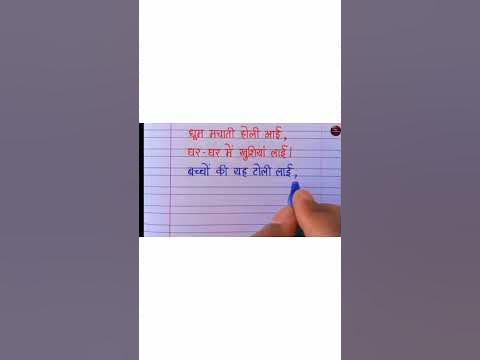 धूम मचाती होली आई,
घर-घर में खुशियां लाई।
बच्चों की यह टोली लाई,